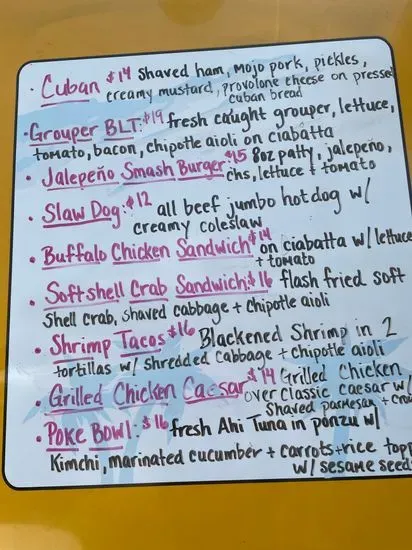 · Cuban $14 shaved ham, mojo pork, pickles,
creamy mustard, provolone cheese on pressed
cuban bread
· Grouper BLT: $19 fresh caught grouper, lettuce,
tomato, bacon, chipotle aioli on ciabatta
· Jalepeño Smash Burger: $15 8oz patty, jalepeño,
chs, lettuce + tomato
· Slaw Dog: $12 all beef jumbo hotdog w/
creamy coleslaw
· Buffalo Chicken Sandwich $14 on ciabatta w/ lettuce
+ tomato
· Softshell Crab Sandwich: $16 flash fried soft
shell crab, shaved cabbage + chipotle aioli
· Shrimp Tacos $16 Blackened Shrimp in 2
tortillas w/ shredded cabbage + chipotle aioli
· Grilled Chicken Caesar $14 Grilled Chicken
over classic caesar w/
Shaved parmesan +
· Poke Bowl: $16 fresh Ahi Tuna in ponzu w/
Kimchi, marinated cucumber + carrots + rice
w/ sesame seed